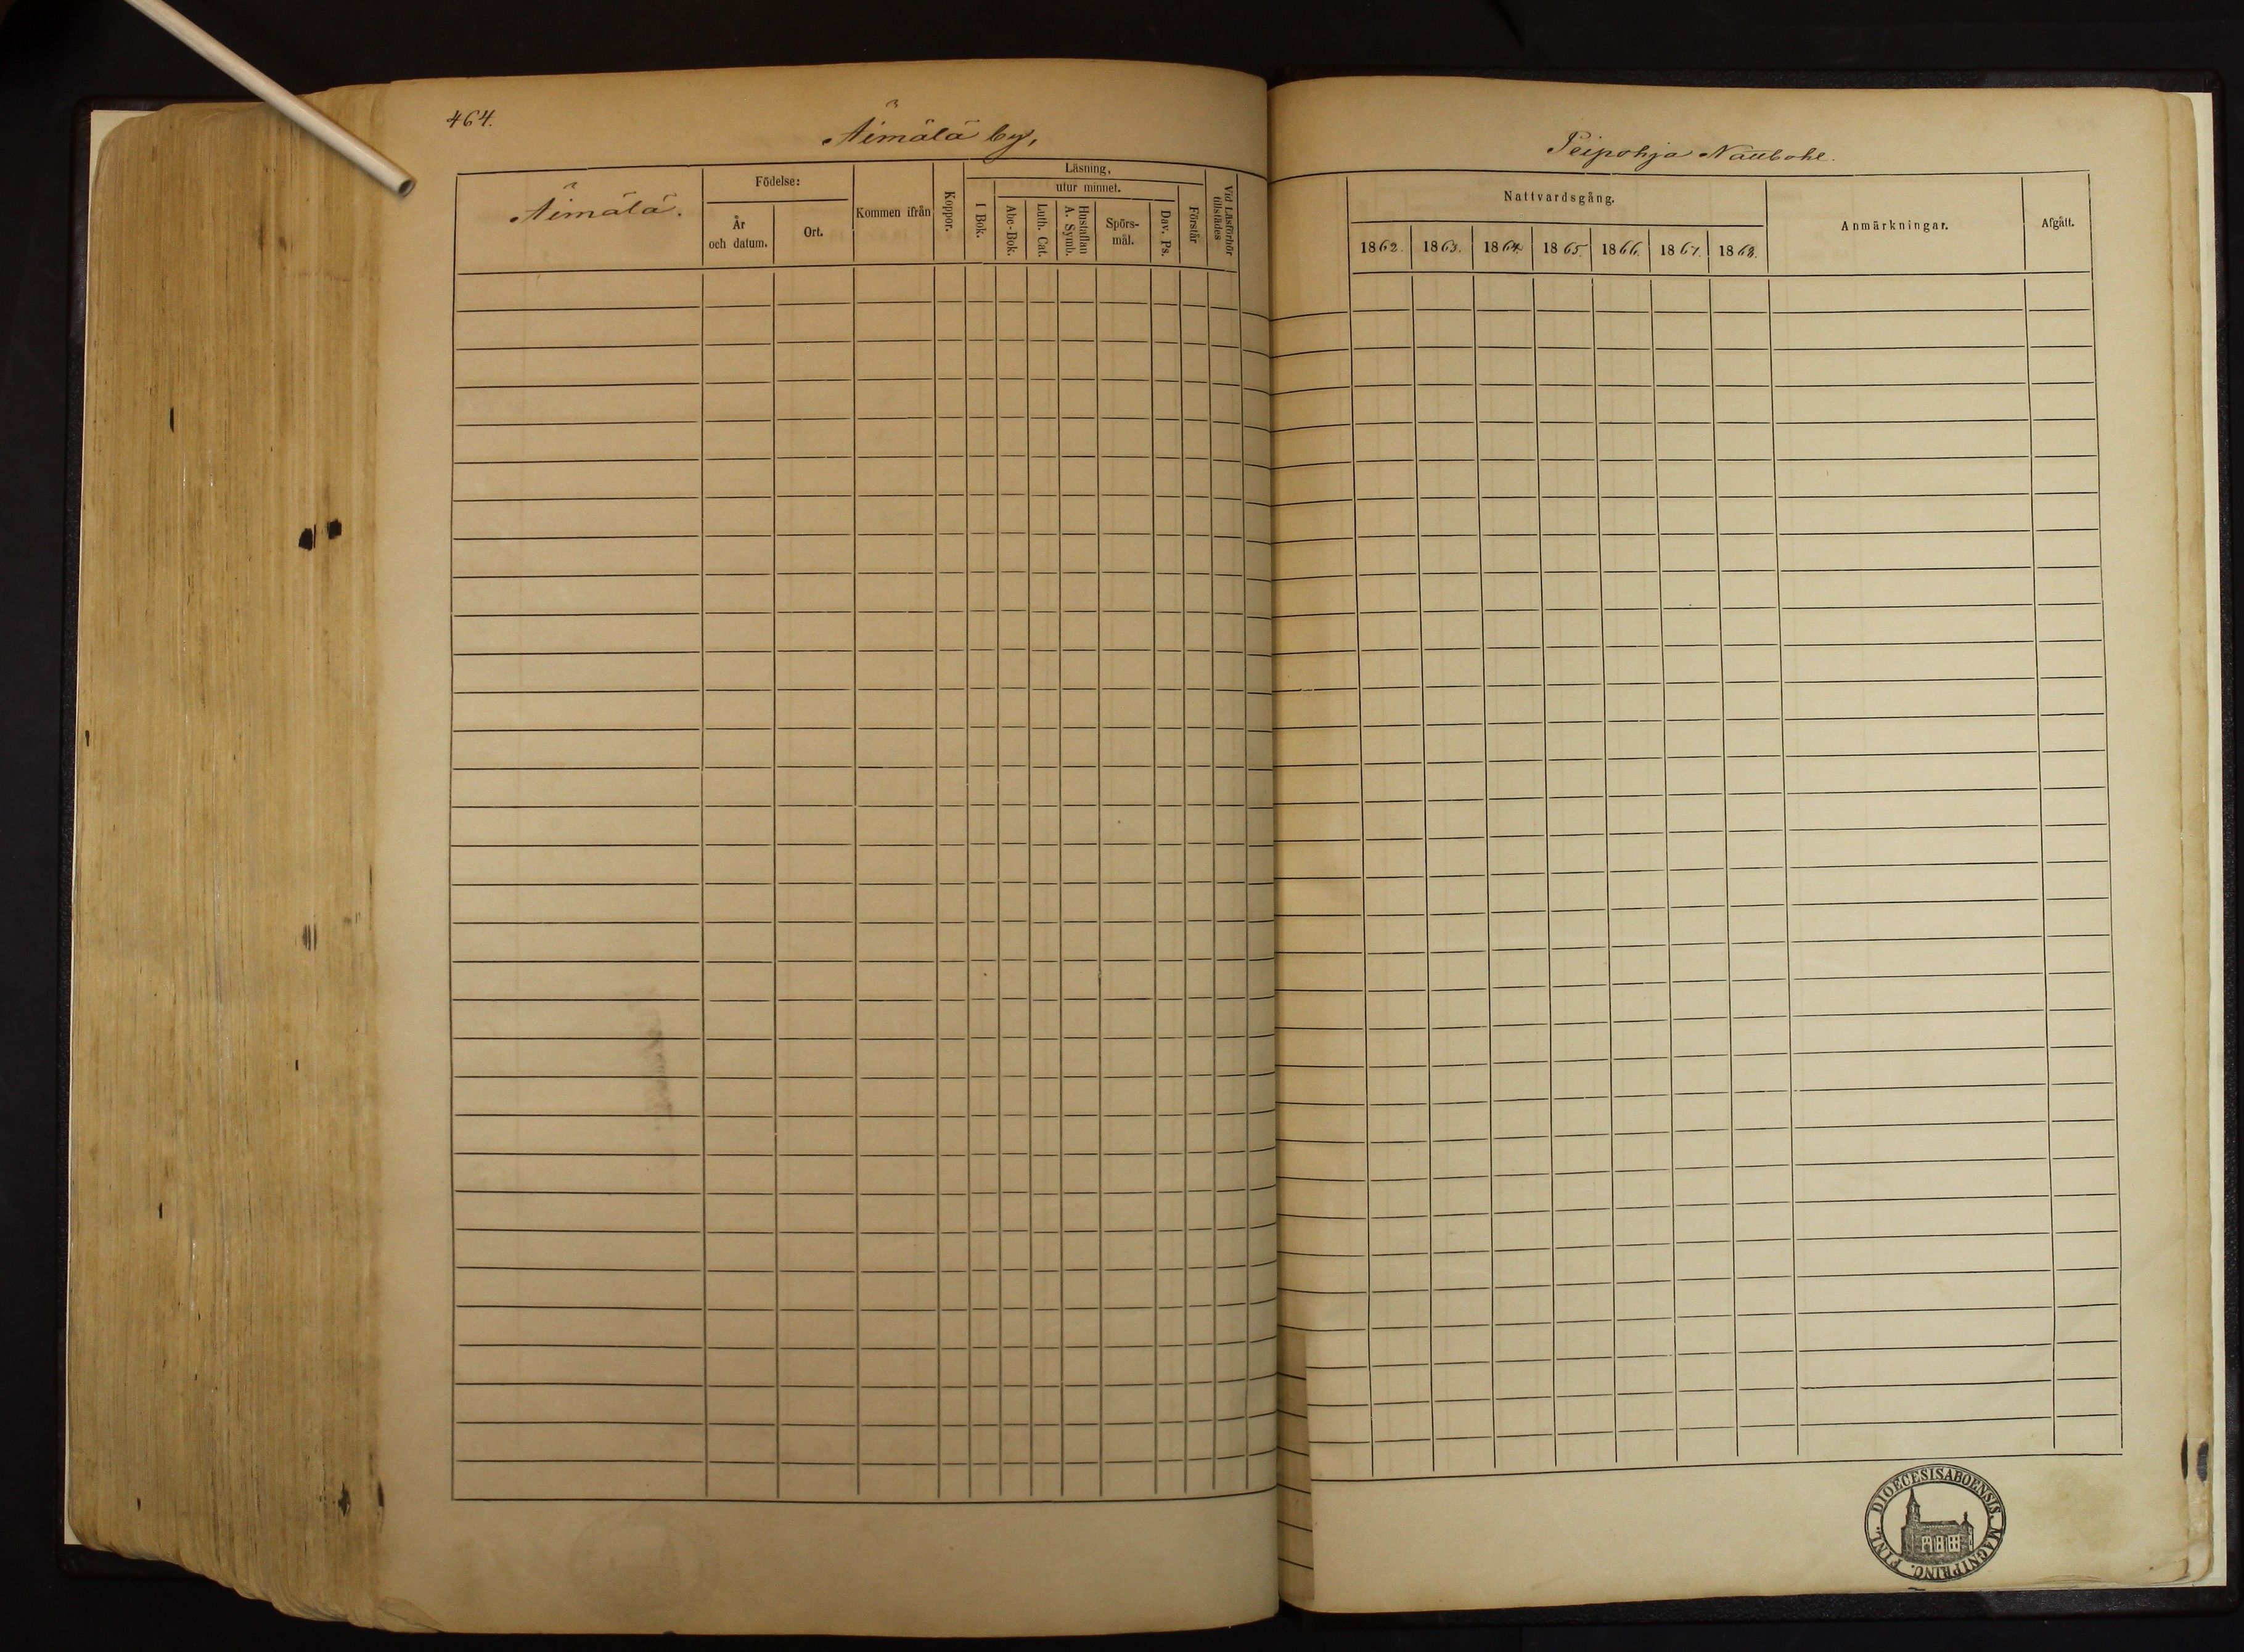 464.
Äimälä by,
Äimälä.
Födelse:
År
och datum.
Ort.
Kommen ifrån
Koppor.
Läsning,
I Bok.
utur minnet.
Abc-Bok.
Luth. Cat.
Hustaflan
A. Symb.
Spörs-
mål.
Dav. Ps.
Förstår
Vid Läsförhör
tillstädes
Peipohja Nällbohl.
Nattvardsgång.
1862. 1863. 1864. 1865. 1866. 1867. 1868.
Anmärkningar.
Afgått.
DIOECESIS ABOENSIS. MAGNI PRINC. FINL.